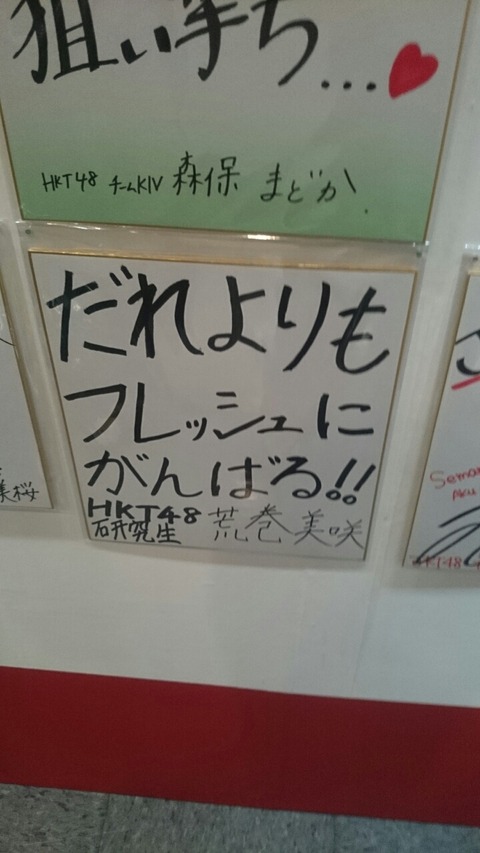 狙い撃ち...
HKT48 チームKIV 森保 まどか
だれよりも
フレッシュに
がんばる!!
HKT48
研究生 荒巻美咲
美桜
HKT48